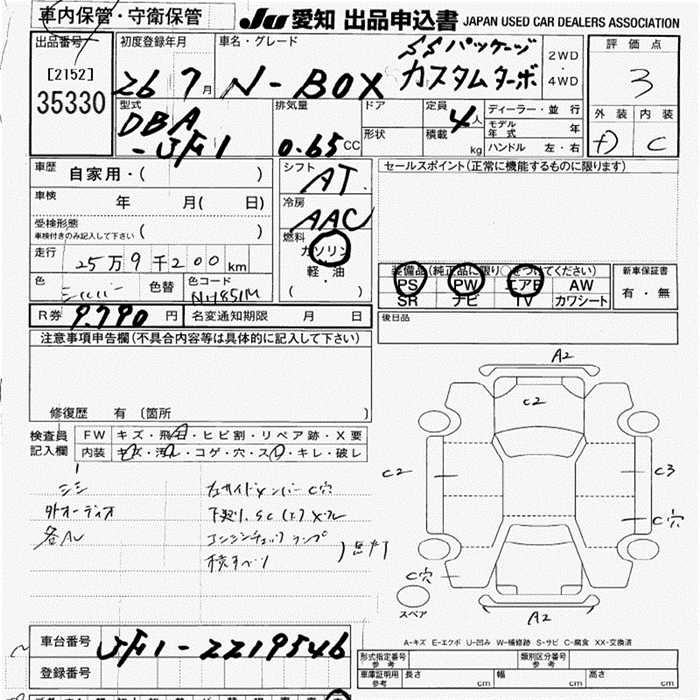 車内保管・守衛保管
JU 愛知 出品申込書 JAPAN USED CAR DEALERS ASSOCIATION
出品番号
[2152]
35330
初度登録年月
26 7月
車名・グレード
N-BOX
SSパッケージ
カスタムターボ
2WD
4WD
評価点
3
外装 内装
C
型式
DBA
-JF1
排気量
0.65CC
ドア
形状
定員
4人
積載
kg
ディーラー・並行
モデル年式 年
ハンドル 左・右
車歴 自家用・( )
車検 年 月( 日)
受検形態
車検付きのみ記入して下さい ( )
走行 25万9千200km
色 シルバー 色替
色コード NH851M
シフト AT
冷房 AAC
燃料
ガソリン
軽・油
( )
セールスポイント(正常に機能するものに限ります)
装備品(純正品に限り○をつけてください)
PS PW エアB AW
SR ナビ TV カワシート
新車保証書
有・無
R券 9.790円 名変通知期限 月 日
後日品
注意事項申告欄(不具合内容等は具体的に記入して下さい)
修復歴 有 〔箇所 〕
検査員記入欄
FW キズ・飛石・ヒビ割・リペア跡・X要
内装 キズ・汚れ・コゲ・穴・スレ・キレ・破レ
外オーディオ
右サイドメンバーC穴
エンジンチェックランプ
横すべり
A2
C2
C2
C3
C穴
C穴
A2
スペア
A-キズ E-エクボ U-凹み W-補修跡 S-サビ C-腐食 XX-交換済
車台番号 JF1-2219546
登録番号
形式指定番号 参考
類別区分番号 参考
車庫証明用 参考 長さ cm 幅 cm 高さ cm